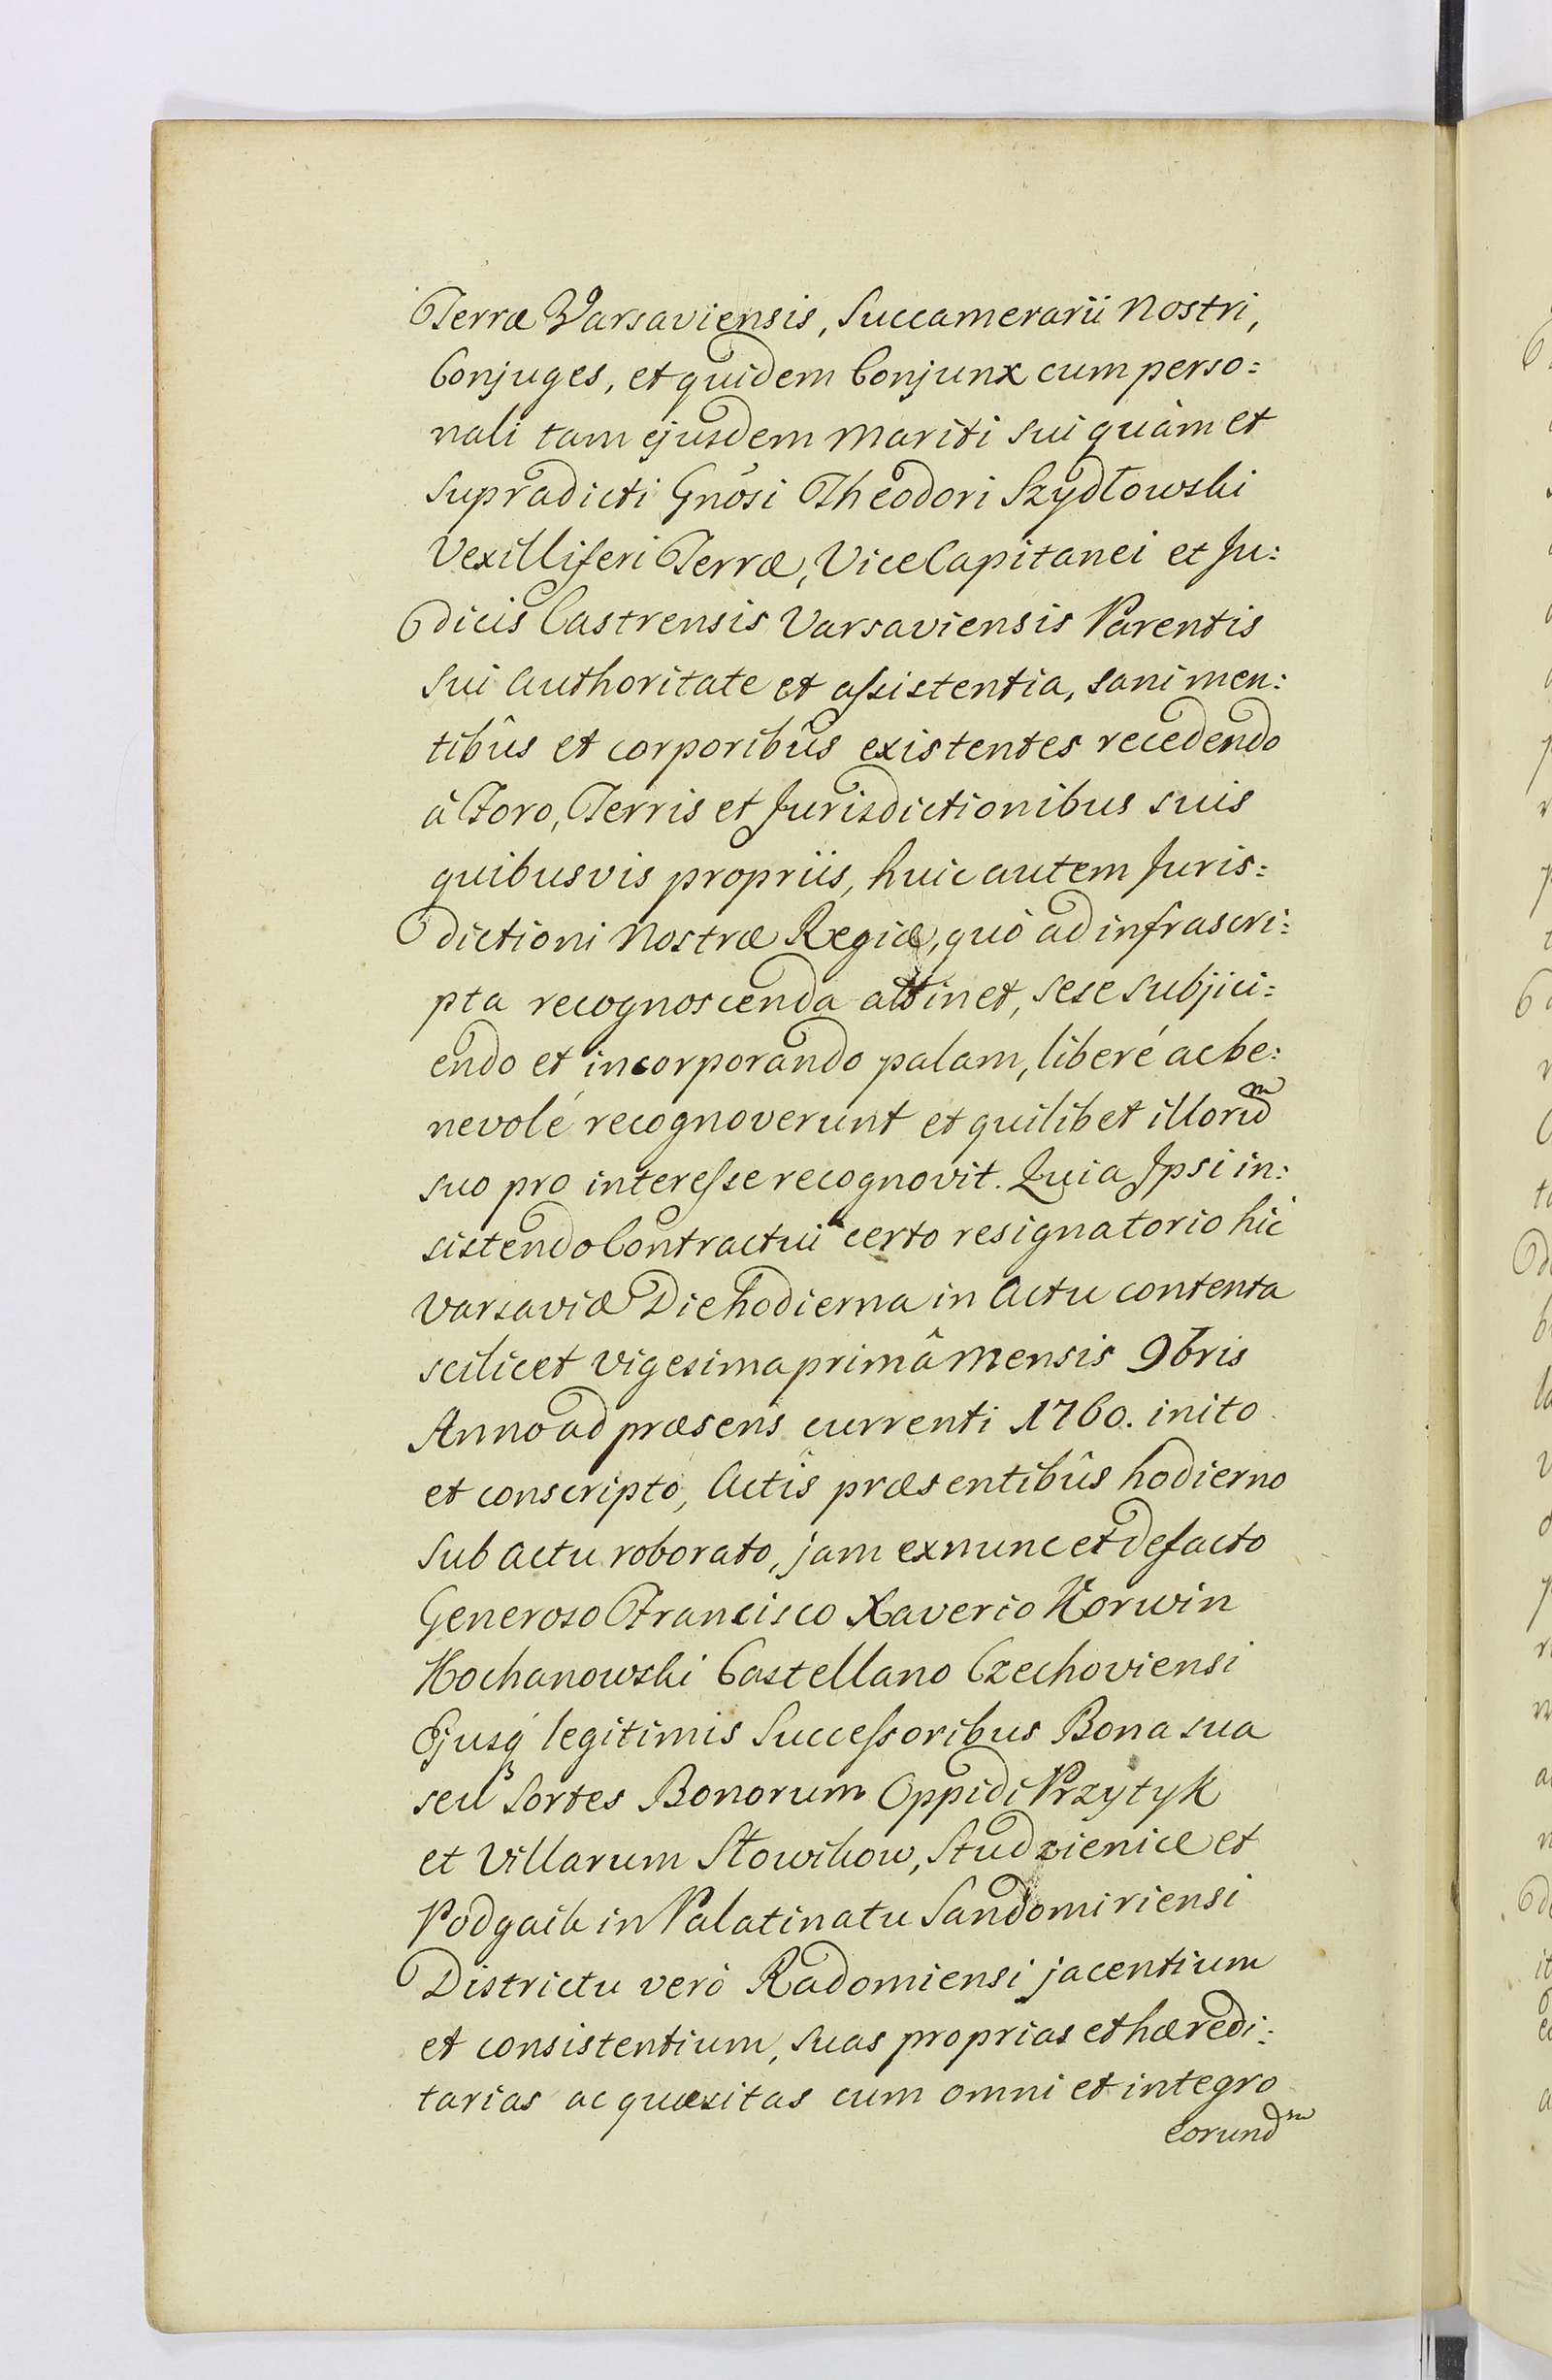 Terræ Varsaviensis, Succamerarii Nostri,
Conjuges, et quidem Conjunx cum perso:
nali tam ejusdem Mariti sui quàm et
supradicti Gnosi Theodori Szydłowski
Vexilliferi Terræ, ViceCapitanei et Ju:
dicis Castrensis Varsaviensis Parentis
sui authoritate et assistentia, sani men:
tibûs et corporibûs existentes recedendo
à Foro, Terris et Jurisdictionibus suis
quibusvis propriis, huic autem Juris:
dictioni Nostræ Regiæ, quò ad infrascri:
pta recognoscenda attinet, sese subjici:
endo et incorporando palam, liberé ac be:
nevolé recognoverunt et quilibet illorum
suo pro interesse recognovit. Quia Ipsi in:
sistendo Contractui certo resignatorio hic
Varsaviæ Die hodierna in Actu contenta
scilicet vigesima primâ Mensis 9bris
Anno ad præsens currenti 1760. inito
et conscripto, Actis præsentibûs hodierno
sub actu roborato, jam exnunc et defacto
Generoso Francisco Xaverio Korwin
Kochanowski Castellano Czechoviensi
Ejusq́ legitimis Successoribus Bona sua
seu Sortes Bonorum Oppidi Przytyk
et Villarum Słowikow, Studzienice et
Podgaik in Palatinatu Sandomiriensi
Districtu verò Radomiensi jacentium
et consistentium, suas proprias et hæredi:
tarias acquæsitas cum omni et integro
eorundm